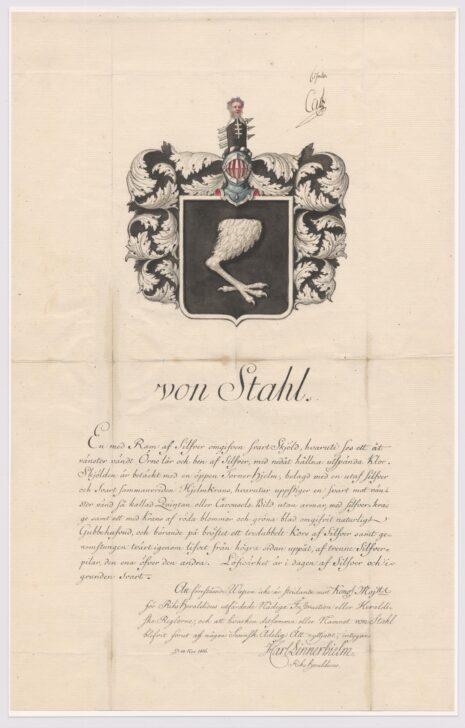 von Stahl.
En med Ram af Silfver omgifven svart Skjöld, hvaruti ses ett åt
vänster vändt Örne lår och ben af Silfver, med nedåt hållna utspända Klor.
Skjölden är betäckt med en öppen Torner Hjelm, belagd med en utaf Silfver
och Svart sammanvriden Hjelmkrans, hvarutur uppstiger en Svart mot vän-
ster vänd så kallad Quintan eller Carousels Bild utan armar, med silfver kra-
ge samt ett med Krans af röda blommor och gröna blad omgifvit naturligt
Gubbhufvud, och bärande på bröstet ett tredubbelt Kors af Silfver samt ge-
nomstungen tvärt igenom lifvet från högra sidan uppåt, af trenne Silfver-
pilar, den ena öfver den andra. Löfvärket är i dagen af Silfver och i
grunden Svart.
Att förestående Wapen icke är stridande mot Kongl. Maj:ts
för Riks Heraldicus utfärdade Nådiga Instruction eller Heraldi-
ske Reglorne; och att hvarken detsamma eller Namnet von Stahl
blifvit förut af någon Svensk Adelig Ätt nyttjadt, intygar
Karl Linnerhielm.
Riks Heraldicus.